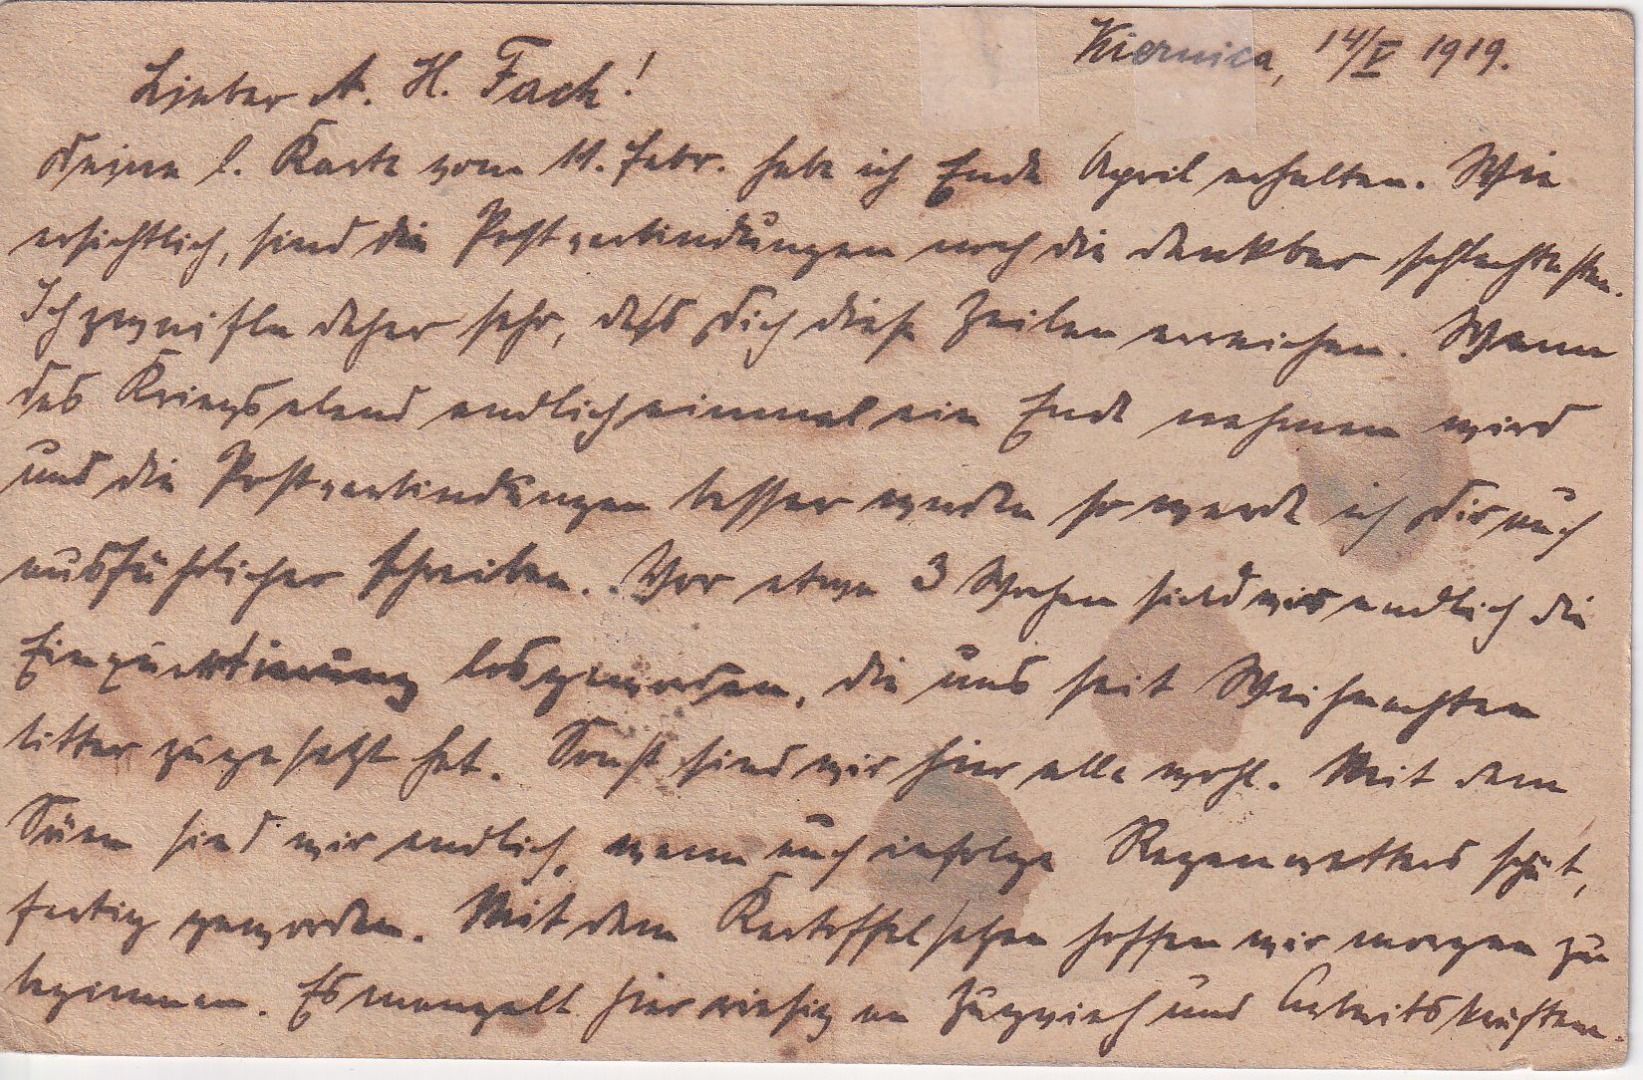 Kiernica, 14/V 1919.
Lieber A. H. Fach!
Deine l. Karte vom 11. Febr. habe ich Ende April erhalten. Wie
ersichtlich, sind die Postverbindungen noch die denkbar schlechtesten.
Ich zweifle daher sehr, daß Dich diese Zeilen erreichen. Wenn
das Kriegselend endlich einmal ein Ende nehmen wird
und die Postverbindungen besser werden so werde ich Dir auch
ausführlicher schreiben. Vor etwa 3 Wochen sind wir endlich die
Einquartierung losgeworden, die uns seit Weihnachten
bitter zugesetzt hat. Sonst sind wir hier alle wohl. Mit dem
Säen sind wir endlich, wenn auch infolge Regenwetters spät,
fertig geworden. Mit dem Kartoffelsetzen hoffen wir morgen zu
beginnen. Es mangelt hier riesig an Zugvieh und Arbeitskräften.